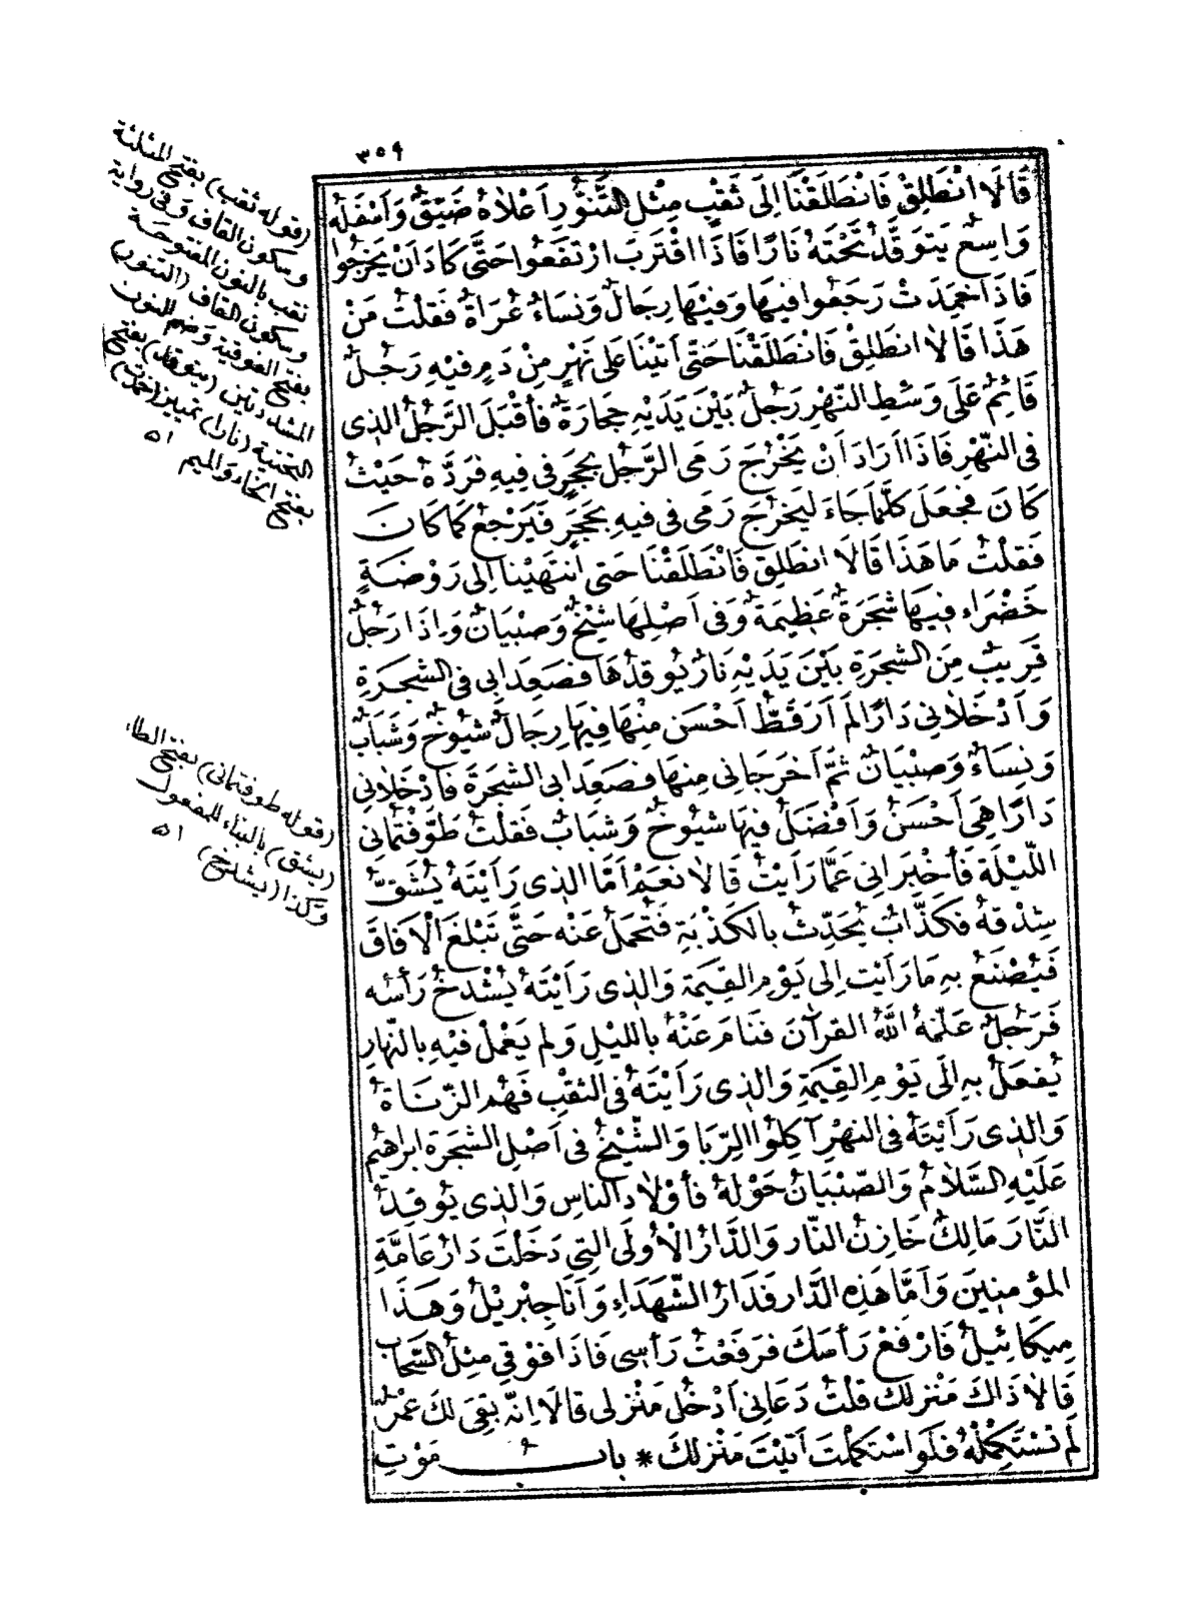 ٣٥٩
قَالَا انْطَلِقْ فَانْطَلَقْنَا اِلَى ثَقْبٍ مِثْلِ التَّنُّورِ اَعْلَاهُ ضَيِّقٌ وَاَسْفَلُهُ
وَاسِعٌ يَتَوَقَّدُ تَحْتَهُ نَارًا فَاِذَا اقْتَرَبَ ارْتَفَعُوا حَتَّى كَادَ اَنْ يَخْرُجُوا
فَاِذَا خَمِدَتْ رَجَعُوا فِيهَا وَفِيْهَا رِجَالٌ وَنِسَاءٌ عُرَاةٌ فَقُلْتُ مَنْ
هَذَا قَالَا انْطَلِقْ فَانْطَلَقْنَا حَتَّى اَتَيْنَا عَلَى نَهَرٍ مِنْ دَمٍ فِيْهِ رَجُلٌ
قَائِمٌ عَلَى وَسَطِ النَّهْرِ رَجُلٌ بَيْنَ يَدَيْهِ حِجَارَةٌ فَأَقْبَلَ الرَّجُلُ الذِى
فِى النَّهْرِ فَاِذَا اَرَادَ اَنْ يَخْرُجَ رَمَى الرَّجُلُ بِحَجَرٍ فِى فِيهِ فَرَدَّهُ حَيْثُ
كَانَ فَجَعَلَ كُلَّمَا جَاءَ لِيَخْرُجَ رَمَى فِى فِيهِ بِحَجَرٍ فَيَرْجِعُ كَمَا كَانَ
فَقُلْتُ مَا هَذَا قَالَا انْطَلِقْ فَانْطَلَقْنَا حَتَى انْتَهَيْنَا اِلَى رَوْضَةٍ
خَضْرَاءَ فِيهَا شَجَرَةٌ عَظِيمَةٌ وَفِى اَصْلِهَا شَيْخٌ وَصِبْيَانٌ وَاِذَا رَجُلٌ
قَرِيبٌ مِنَ الشَّجَرَةِ بَيْنَ يَدَيْهِ نَارٌ يُوقِدُهَا فَصَعِدَا بِى فِى الشَّجَرَةِ
وَاَدْخَلَانِى دَارًا لَمْ اَرَ قَطُّ اَحْسَنَ مِنْهَا فِيهَا رِجَالٌ شُيُوخٌ وَشَبَابٌ
وَنِسَاءٌ وَصِبْيَانٌ ثُمَّ اَخْرَجَانِى مِنْهَا فَصَعِدَا بِى الشَّجَرَةَ فَاَدْخَلَانِى
دَارًا هِىَ اَحْسَنُ وَاَفْضَلُ فِيهَا شُيُوخٌ وَشَبَابٌ فَقُلْتُ طَوَّفْتُمَانِى
اللَّيْلَةَ فَأَخْبِرَانِى عَمَّا رَاَيْتُ قَالَا نَعَمْ اَمَّا الذِى رَاَيْتَهُ يُشَقُّ
شِدْقُهُ فَكَذَّابٌ يُحَدِّثُ بِالكَذْبَةِ فَتُحْمَلُ عَنْهُ حَتَّى تَبْلُغَ الْآفَاقَ
فَيُصْنَعُ بِهِ مَا رَاَيْتَ اِلَى يَوْمِ القِيٰمَةِ وَالذِى رَاَيْتَهُ يُشْدَخُ رَأْسُهُ
فَرَجُلٌ عَلَّمَهُ اللّٰهُ القُرآنَ فَنَامَ عَنْهُ بِالليْلِ وَلَمْ يَعْمَلْ فِيْهِ بِالنَّهَارِ
يُفْعَلُ بِهِ اِلَى يَوْمِ القِيٰمَةِ وَالذِى رَاَيْتَهُ فِى الثَّقْبِ فَهُمُ الزُّنَاةُ
وَالذِى رَاَيْتَهُ فِى النَهْرِ آكِلُوا الرِّبَا وَالشَّيْخُ فِى اَصْلِ الشَّجَرَةِ ابراهيمُ
عَلَيْهِ السَّلَامُ وَالصِّبْيَانُ حَوْلَهُ فَأَوْلَادُ النَّاسِ وَالذِى يُوقِدُ
النَّارَ مَالِكٌ خَازِنُ النَّارِ وَالدَّارُ الْاُولَى التِى دَخَلْتَ دَارُ عَامَّةِ
المُؤْمِنِينَ وَاَمَّا هَذِهِ الدَّارُ فَدَارُ الشُّهَدَاءِ وَاَنَا جِبْرِيْلُ وَهَذَا
مِيكَائِيلُ فَارْفَعْ رَأسَكَ فَرَفَعْتُ رَأْسِى فَاِذَا فَوْقِى مِثْلُ السَّحَابِ
قَالَا ذَاكَ مَنْزِلُكَ قُلْتُ دَعَانِى اَدْخُلْ مَنْزِلِى قَالَا اِنَّهُ بَقِىَ لَكَ عُمُرٌ
لَمْ تَسْتَكْمِلْهُ فَلَوِ اسْتَكْمَلْتَ اَتَيْتَ مَنْزِلَكَ * بابُ مَوْتِ
(قوله ثقب) بفتح المثلثة
وسكون القاف وفى رواية
نقب بالنون المفتوحة
وسكون القاف (التنور)
بفتح الفوقية وضم النون
المشددتين (يتوقد) بفتح
التحتية (نارا) تمييز (خمدت)
بفتح الخاء والميم اه
(قوله طوفتمانى) بفتح الطاء
(يشق) بالبناء للمفعول
وكذا (يشدخ) اه